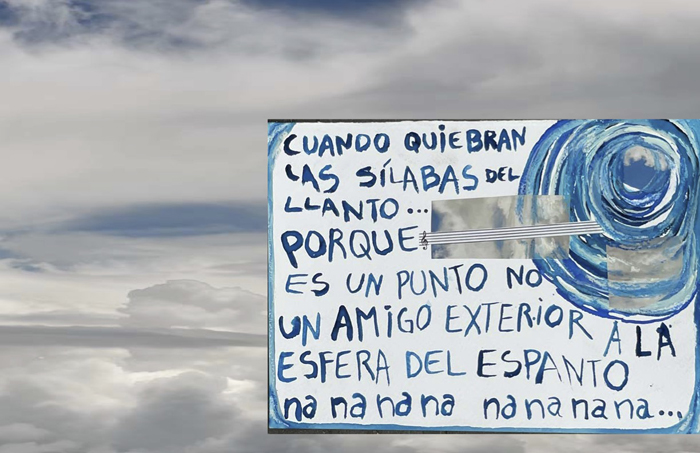 CUANDO QUIEBRAN
LAS SÍLABAS DEL
LLANTO...
PORQUE
ES UN PUNTO NO
UN AMIGO EXTERIOR A LA
ESFERA DEL ESPANTO
na na na na na na na na...